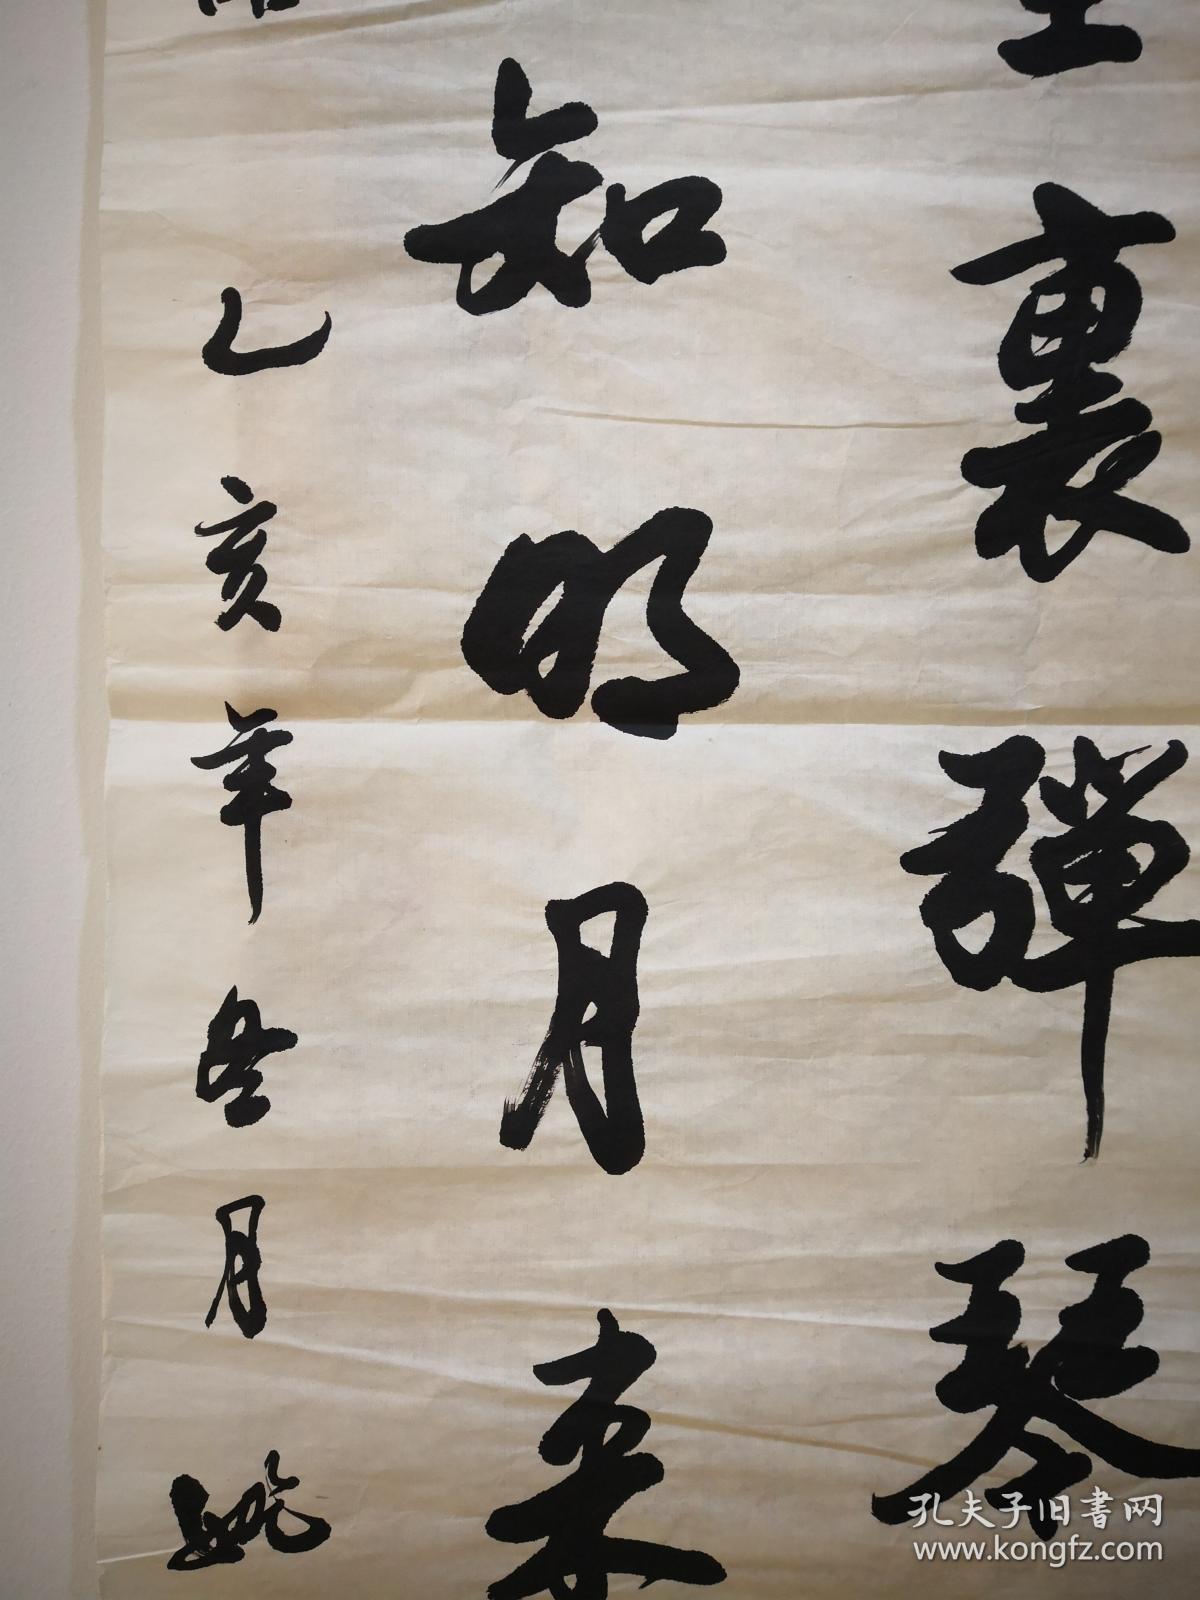 裏彈琴
知明月来
乙亥年冬月姚
孔夫子旧書网
www.kongfz.com